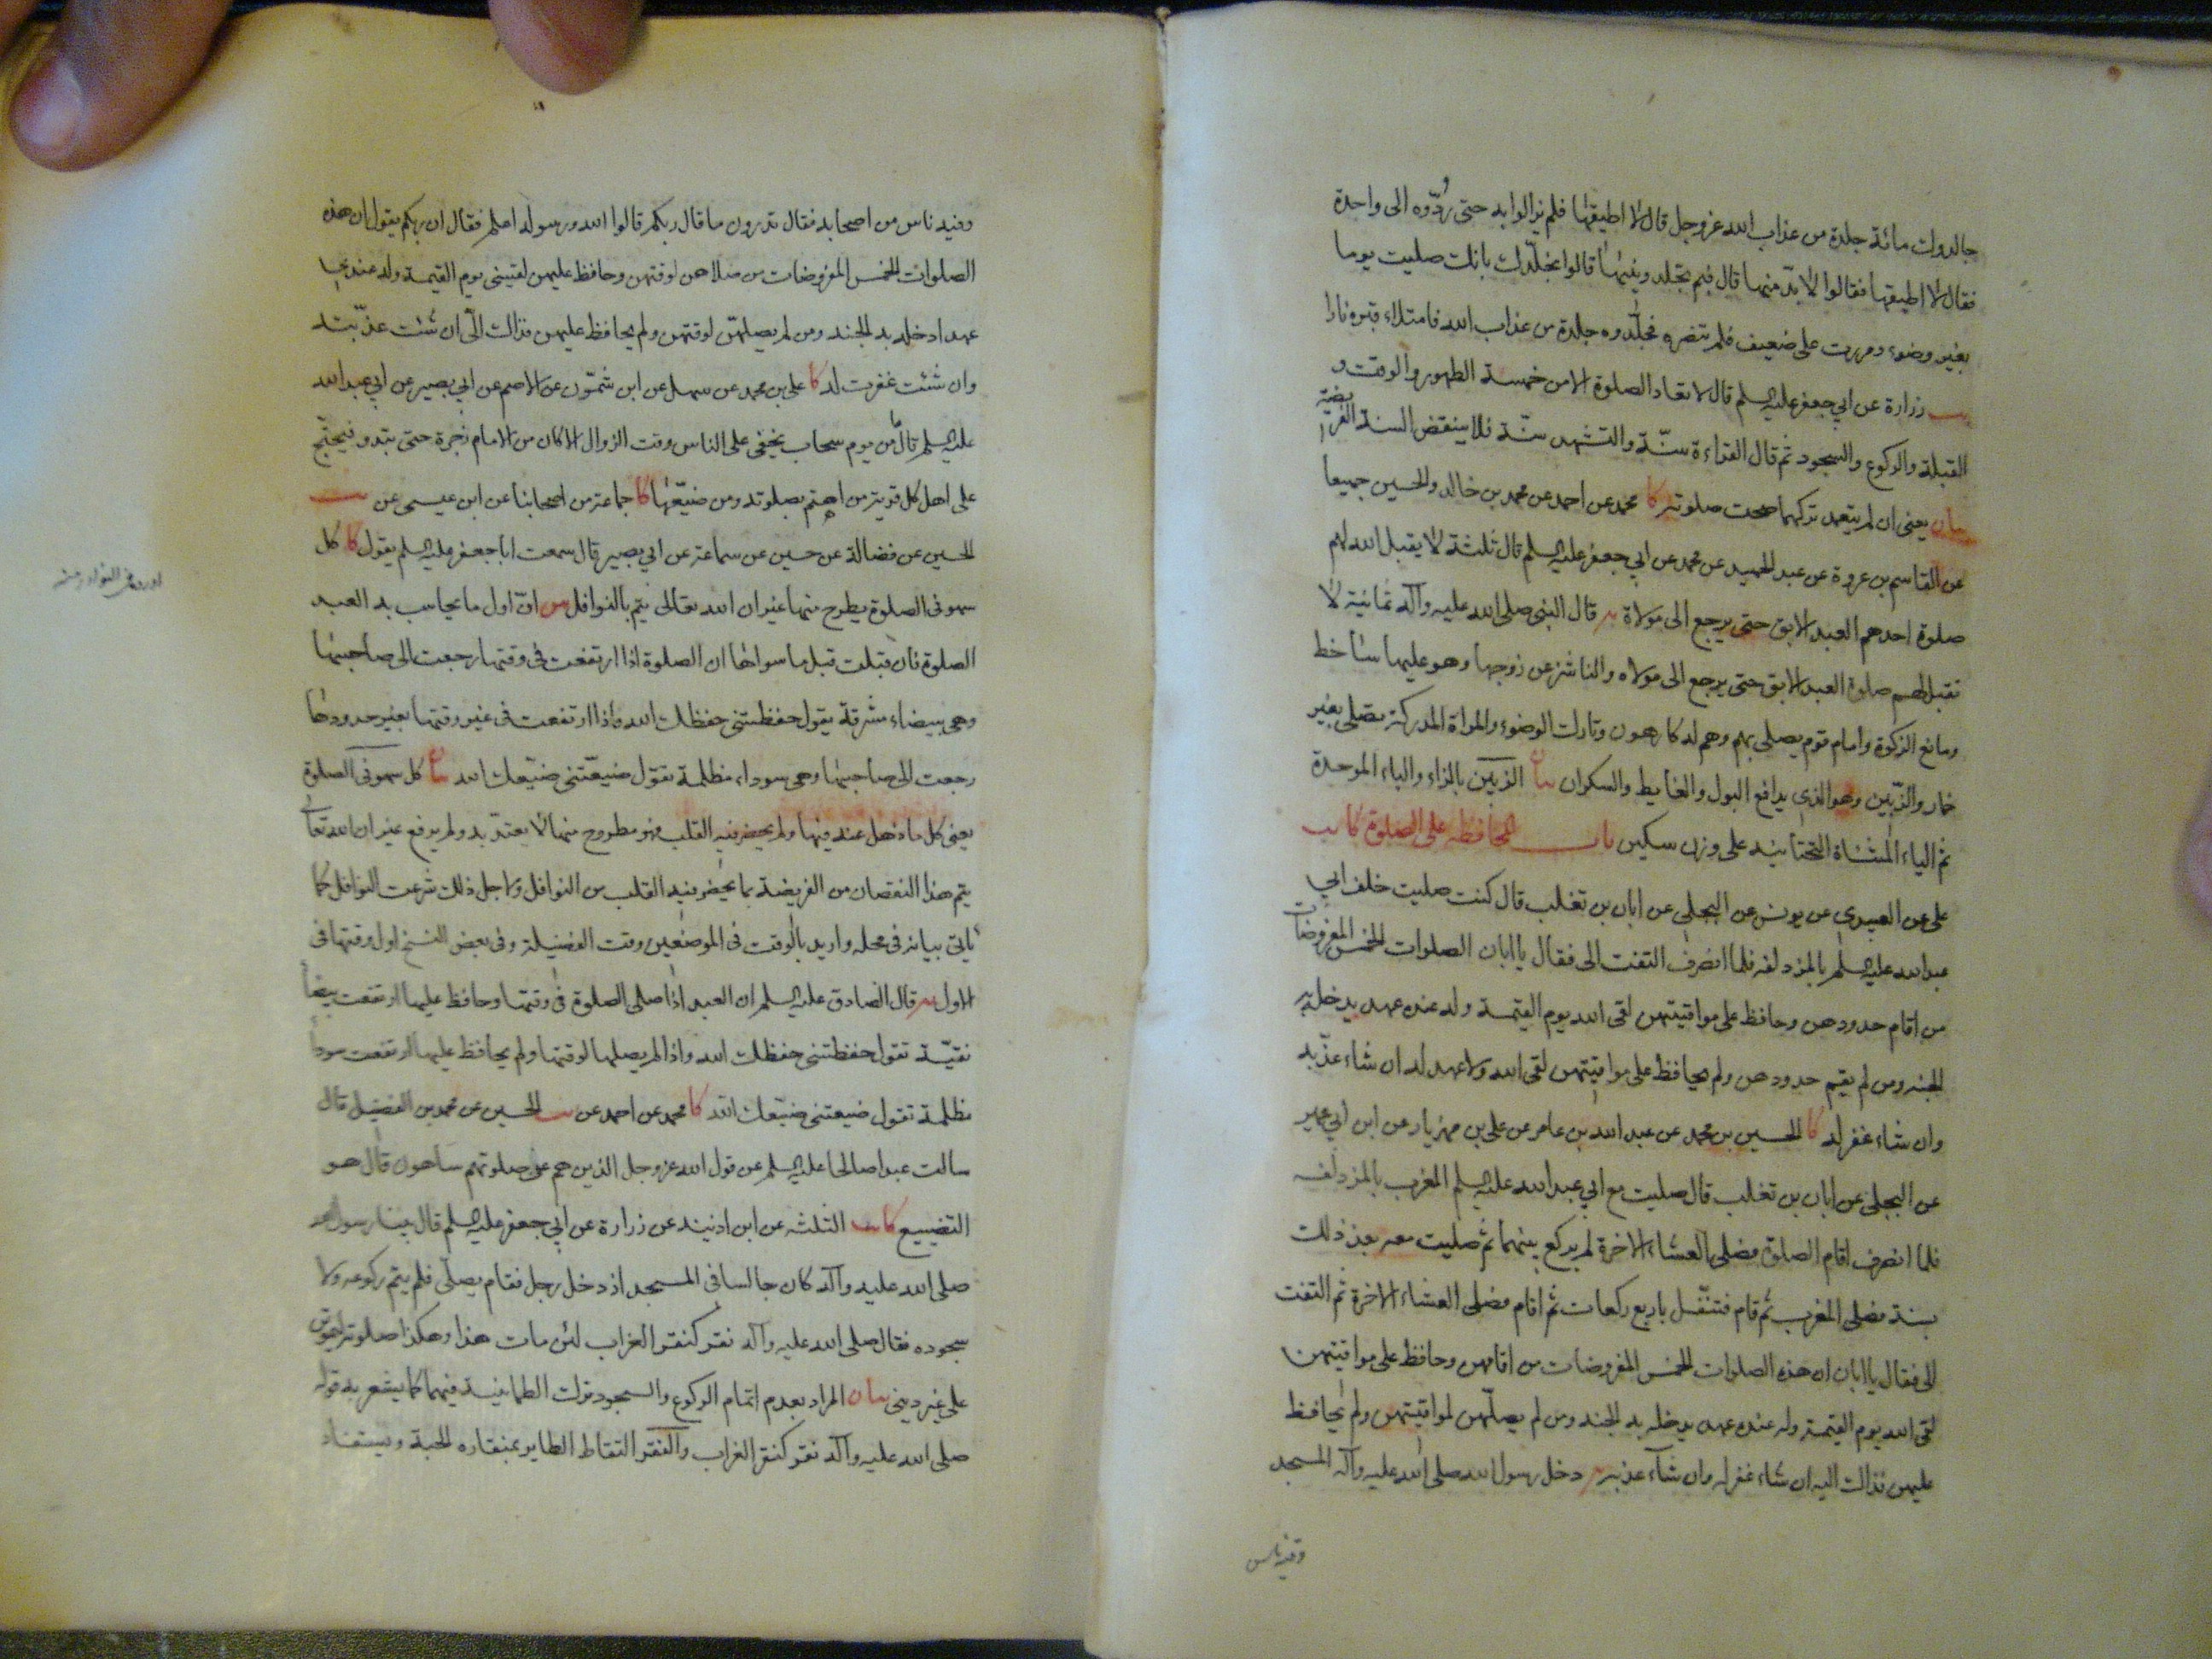 جالدوك مائة جلدة من عذاب الله عز وجل قال لا اطيقها فلم يزالوا به حتى ردّوه الى واحدة
فقال لا اطيقها فقالوا لا بدّ منها قال فبم تجلدونيها قالوا نجلدك بانك صليت يوما
بغير وضوء ومررت على ضعيف فلم تنصره فجلدوه جلدة من عذاب الله فامتلاء قبره نارا
يب زرارة عن ابي جعفر عليه السلم قال لا تعاد الصلوة الا من خمسة الطهور والوقت و
القبلة والركوع والسجود ثم قال القراءة سنّة والتشهد سنّة فلا ينقض السنة الفريضة
بيان يعنى ان لم يتعمد تركهما صحت صلوته كا محمد عن احمد عن محمد بن خالد والحسين جميعا
عن القاسم بن عروة عن عبد الحميد عن محمد عن ابي جعفر عليه السلم قال ثلثة لا يقبل الله لهم
صلوة احدهم العبد الابق حتى يرجع الى مولاة يه قال النبى صلى الله عليه وآله ثمانية لا
تقبل لهم صلوة العبد الابق حتى يرجع الى مولاه والناشز عن زوجها وهو عليها ساخط
ومانع الزكوة وامام قوم يصلى بهم وهم له كارهون وتارك الوضوء والمراة المدركة تصلى بغير
خمار والزبين وهو الذى يدافع البول والغايط والسكران بيان الزبين بالزاء والباء الموحدة
ثم الياء المثناة التحتانيه على وزن سكين باب المحافظه على الصلوة كا يب
على عن العبيدى عن يونس عن البجلى عن ابان بن تغلب قال كنت صليت خلف ابي
عبد الله عليه السلم بالمزدلفه فلما انصرف التفت الى فقال يا ابان الصلوات الخمس المفروضات
من اقام حدودهن وحافظ على مواقيتهن لقى الله يوم القيمة وله عنده عهد يدخله به
الجنه ومن لم يقم حدودهن ولم يحافظ على مواقيتهن لقى الله ولا عهد له ان شاء عذّبه
وان شاء غفر له كا الحسين بن محمد عن عبد الله بن عامر عن على بن مهزيار عن ابن ابي عمير
عن البجلى عن ابان بن تغلب قال صليت مع ابي عبد الله عليه السلم المغرب بالمزدلفه
فلما انصرف اقام الصلوة فصلى العشاء الاخرة لم يركع بينهما ثم صليت معه بعد ذلك
بسنة فصلى المغرب ثم قام فتنفّل باربع ركعات ثم اقام فصلى العشاء الاخرة ثم التفت
الى فقال يا ابان ان هذه الصلوات الخمس المفروضات من اقامهن وحافظ على مواقيتهن
لقى الله يوم القيمة وله عنده عهد يدخله به الجنه ومن لم يصلّهن لمواقيتهن ولم يحافظ
عليهن فذاك اليه ان شاء غفر له وان شاء عذبه يه دخل رسول الله صلى الله عليه وآله المسجد
وفيه ناس
وفيه ناس من اصحابه فقال تدرون ما قال ربكم قالوا الله ورسوله اعلم فقال ان ربكم يقول ان هذه
الصلوات الخمس المفروضات من صلاهن لوقتهن وحافظ عليهن لقينى يوم القيمة وله عندى
عهد ادخله به الجنه ومن لم يصلهنّ لوقتهن ولم يحافظ عليهن فذاك الىّ ان شئت عذّبته
وان شئت غفرت له كا على بن محمد عن سهل عن ابن شمّون عن الاصم عن ابي بصير عن ابي عبد الله
عليه السلم قال ما من يوم سحاب يخفى على الناس وقت الزوال الا كان من الامام زجرة حتى تبدو فيحتج
على اهل كل قرية من اهتم بصلوته ومن ضيّعها كا جماعة من اصحابنا عن ابن عيسى عن
الحسين عن فضالة عن حسين عن سماعة عن ابي بصير قال سمعت ابا جعفر عليه السلم يقول كا كل
سهو فى الصلوة يطرح منها غير ان الله تعالى يتم بالنوافل ان اول ما يحاسب به العبد
الصلوة فان قبلت قبل ما سواها ان الصلوة اذا ارتفعت فى وقتها رجعت الى صاحبها
وهى بيضاء مشرقة يقول حفظتنى حفظك الله واذا ارتفعت فى غير وقتها بغير حدودها
رجعت الى صاحبها وهى سوداء مظلمة تقول ضيعّتنى ضيّعك الله بيان كل سهو فى الصلوة
يعنى كل ما ذهل عنه فيها ولم يحضر فيه القلب فهو مطروح منها لا يعتدّ به ولم يرفع غير ان الله تعالى
يتم هذا النقصان من الفريضة بما يحضر فيه القلب من النوافل ولاجل ذلك شرعت النوافل كما
ياتى بيانه فى محله واريد بالوقت فى الموضعين وقت الفضيلة وفى بعض النسخ اول وقتها فى
الاول يه قال الصادق عليه السلم ان العبد اذا صلى الصلوة فى وقتها وحافظ عليها ارتفعت بيضاء
نقيّة تقول حفظتنى حفظك الله واذا لم يصلها لوقتها ولم يحافظ عليها ارتفعت سوداء
مظلمة تقول ضيعتنى ضيّعك الله كا محمد عن احمد عن الحسين عن محمد بن الفضيل قال
سالت عبدا صالحا عليه السلم عن قول الله عز وجل الذين هم عن صلوتهم ساهون قال هو
التضييع كا يب الثلثه عن ابن اذينه عن زرارة عن ابي جعفر عليه السلم قال بينا رسول الله
صلى الله عليه وآله كان جالسا فى المسجد اذ دخل رجل فقام يصلّى فلم يتم ركوعه ولا
سجوده فقال صلى الله عليه وآله نقر كنقر الغراب لئن مات هذا وهكذا صلوته ليموتن
على غير دينى بيان المراد بعدم اتمام الركوع والسجود ترك الطمانينة فيهما كما يشعر به قوله
صلى الله عليه وآله نقر كنقر الغراب والنقر التقاط الطاير بمنقاره الحبة ويستفاد